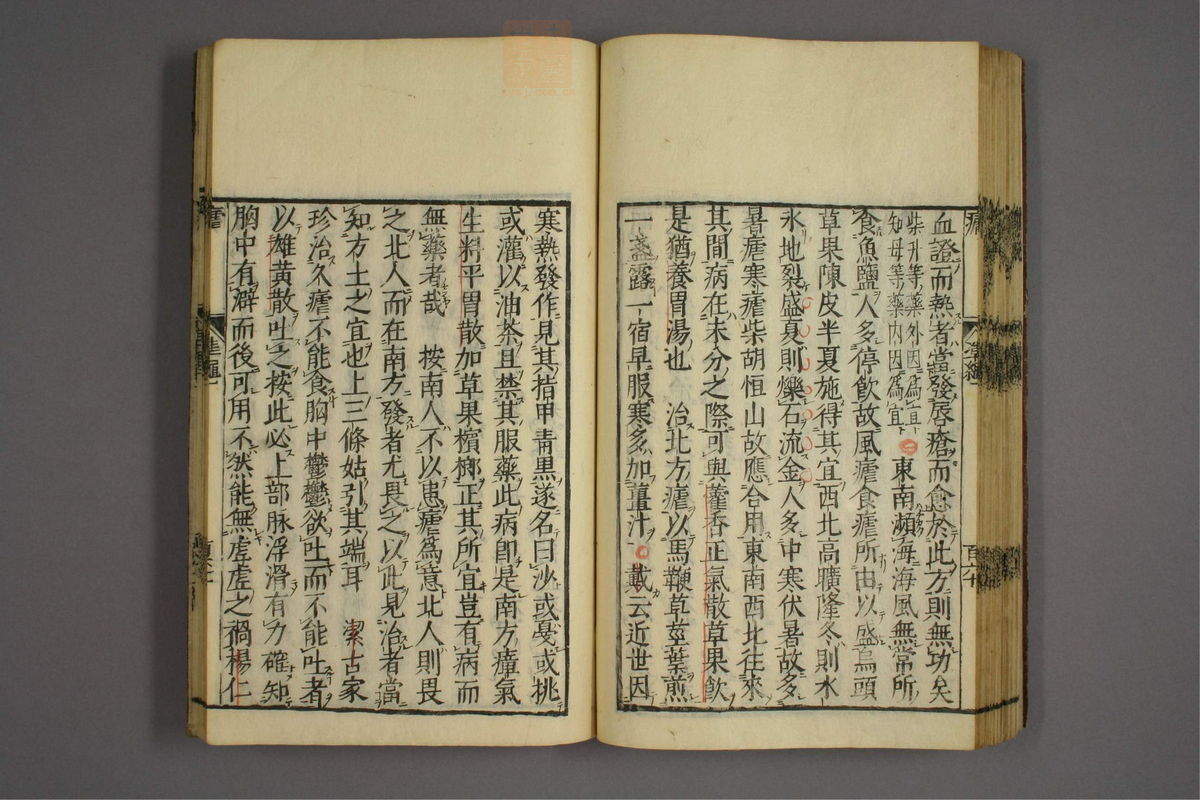 血證而熱者當發唇瘡而愈於此方則無功矣
柴升等藥外因爲宜
知母等藥内因爲宜 東南瀕海海風無常所
食魚鹽人多停飲故風瘧食瘧所由以盛烏頭
草果陳皮半夏施得其宜西北高曠隆冬則水
氷地裂盛夏則爍石流金人多中寒伏暑故多
暑瘧寒瘧柴胡恒山故應合用東南西北往來
其間病在未分之際可與藿香正氣散草果飲
是猶養胃湯也 治北方瘧以馬鞭草莖葉煎
一盞露一宿早服寒多加薑汁 戴云近世因
寒熱發作見其指甲青黒遂名曰沙或戞或挑
或灌以油茶且禁其服藥此病即是南方瘴氣
生料平胃散加草果檳榔正其所宜豈有病而
無藥者哉 按南人不以患瘧爲意北人則畏
之北人而在南方發者尤畏之以此見治者當
知方土之宜也上三條姑引其端耳 潔古家
珍治久瘧不能食胸中鬱鬱欲吐而不能吐者
以雄黄散吐之按此必上部脉浮滑有力確知
胸中有澼而後可用不然能無虛虛之禍楊仁